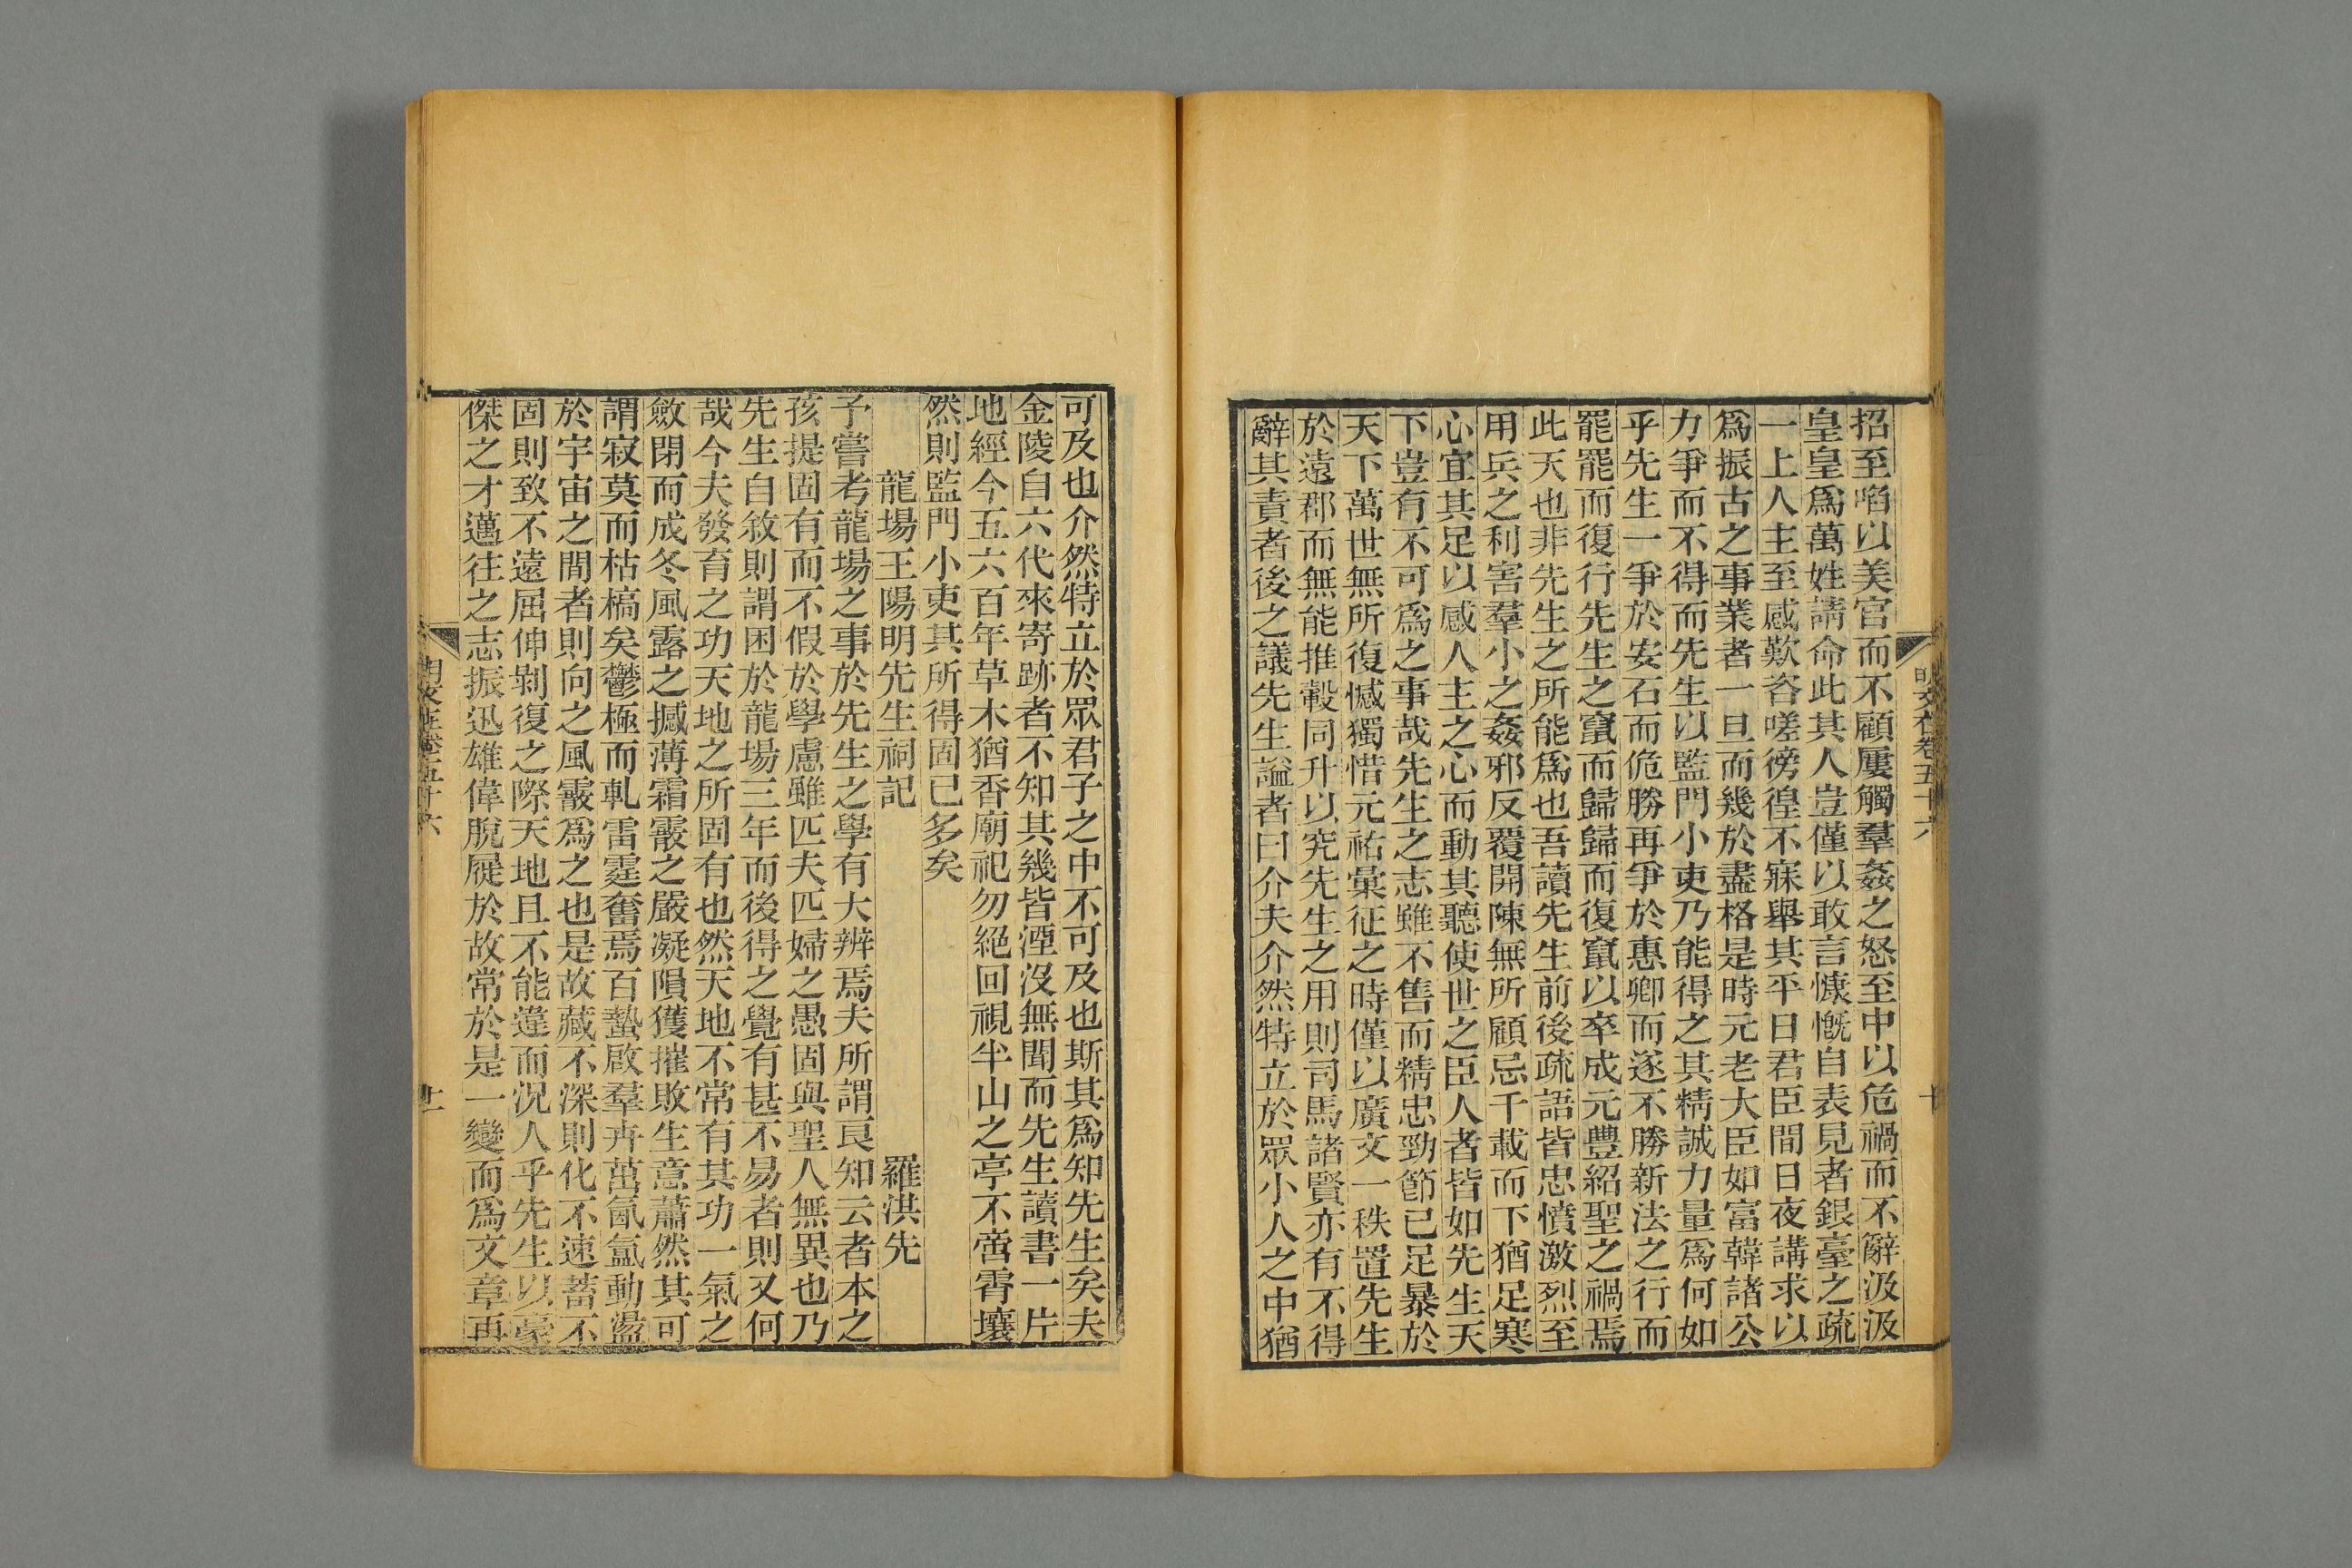 招至啗以美官而不顧屢觸羣姦之怒至中以危禍而不辭汲汲
皇皇爲萬姓請命此其人豈僅以敢言慷慨自表見者銀臺之疏
一上人主至感歎咨嗟徬徨不寐舉其平日君臣間日夜講求以
爲振古之事業者一旦而幾於盡格是時元老大臣如富韓諸公
力爭而不得而先生以監門小吏乃能得之其精誠力量爲何如
乎先生一爭於安石而俛勝再爭於惠卿而遂不勝新法之行而
罷罷而復行先生之竄而歸歸而復竄以卒成元豐紹聖之禍焉
此天也非先生之所能爲也吾讀先生前後疏語皆忠憤激烈至
用兵之利害羣小之姦邪反覆開陳無所顧忌千載而下猶足寒
心宜其足以感人主之心而動其聽使世之臣人者皆如先生天
下豈有不可爲之事哉先生之志雖不售而精忠勁節已足暴於
天下萬世無所復憾獨惜元祐彙征之時僅以廣文一秩置先生
於遠郡而無能推轂同升以究先生之用則司馬諸賢亦有不得
辭其責者後之議先生謚者曰介夫介然特立於眾小人之中猶
明文在卷五十六
十
可及也介然特立於眾君子之中不可及也斯其爲知先生矣夫
金陵自六代來寄跡者不知其幾皆湮沒無聞而先生讀書一片
地經今五六百年草木猶香廟祀勿絕回視半山之亭不啻霄壤
然則監門小吏其所得固已多矣
龍場王陽明先生祠記　羅洪先
予嘗考龍場之事於先生之學有大辨焉夫所謂良知云者本之
孩提固有而不假於學慮雖匹夫匹婦之愚固與聖人無異也乃
先生自敘則謂困於龍場三年而後得之覺有甚不易者則又何
哉今夫發育之功天地之所固有也然天地不常有其功一氣之
斂閉而成冬風露之撼薄霜霰之嚴凝隕獲摧敗生意蕭然其可
謂寂莫而枯槁矣鬱極而軋雷霆奮焉百蟄啟羣卉茁氤氳動盪
於宇宙之間者則向之風霰爲之也是故藏不深則化不速蓄不
固則致不遠屈伸剝復之際天地且不能違而況人乎先生以豪
傑之才邁往之志振迅雄偉脫屣於故常於是一變而爲文章再
明文在卷五十六
十一